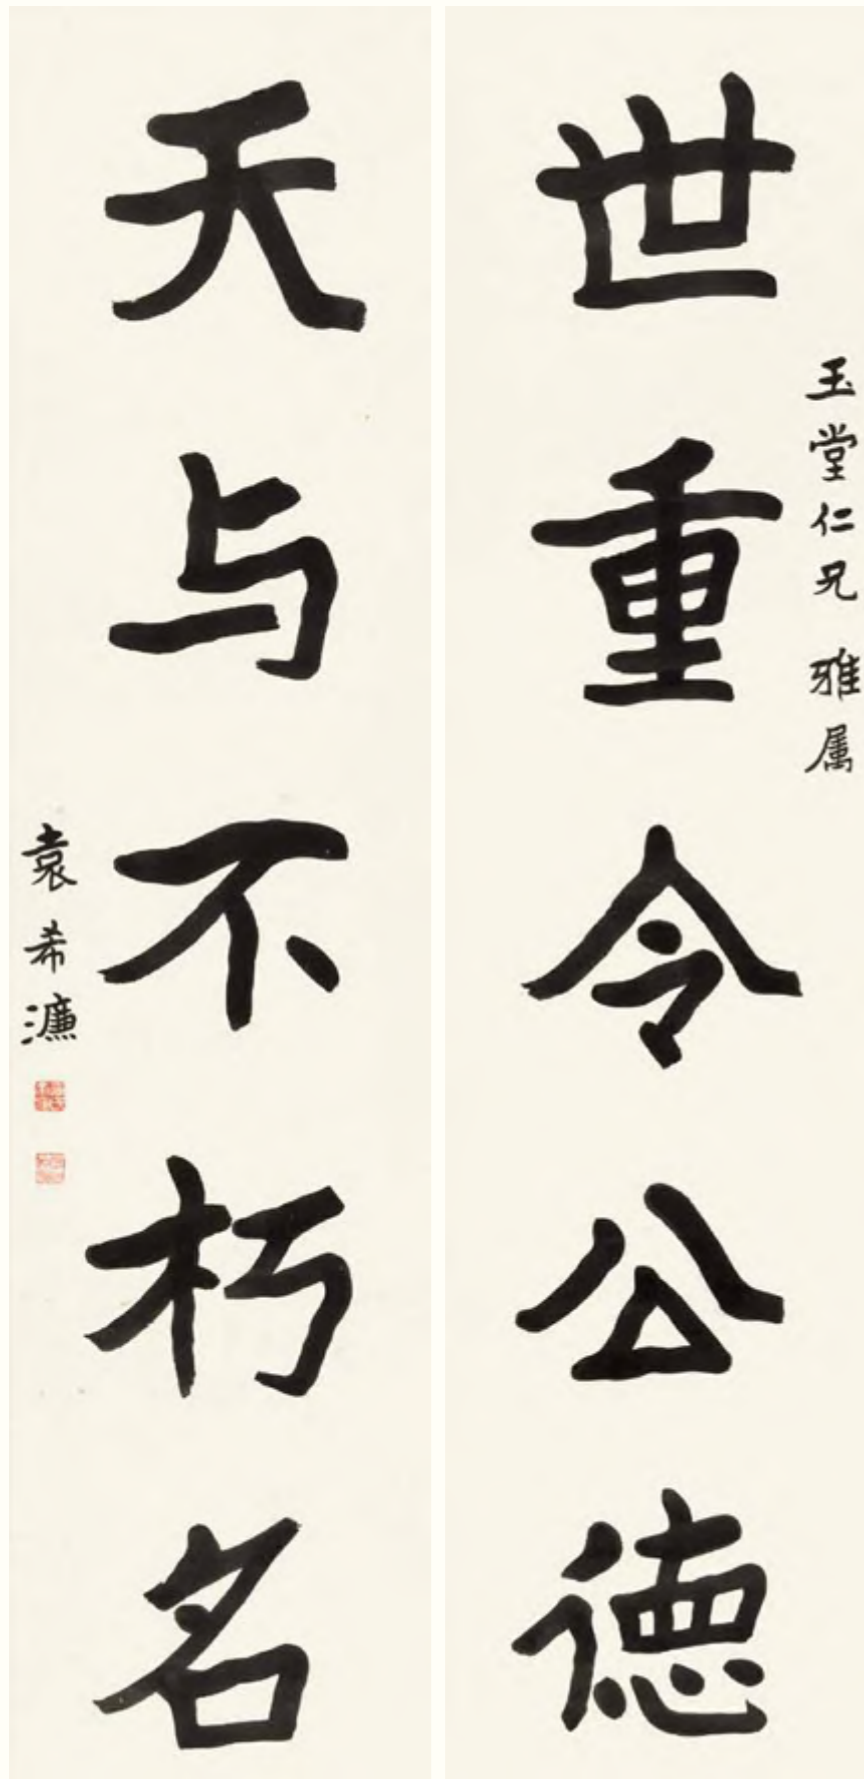 玉堂仁兄 雅属
世重令公德
天与不朽名
袁希濂